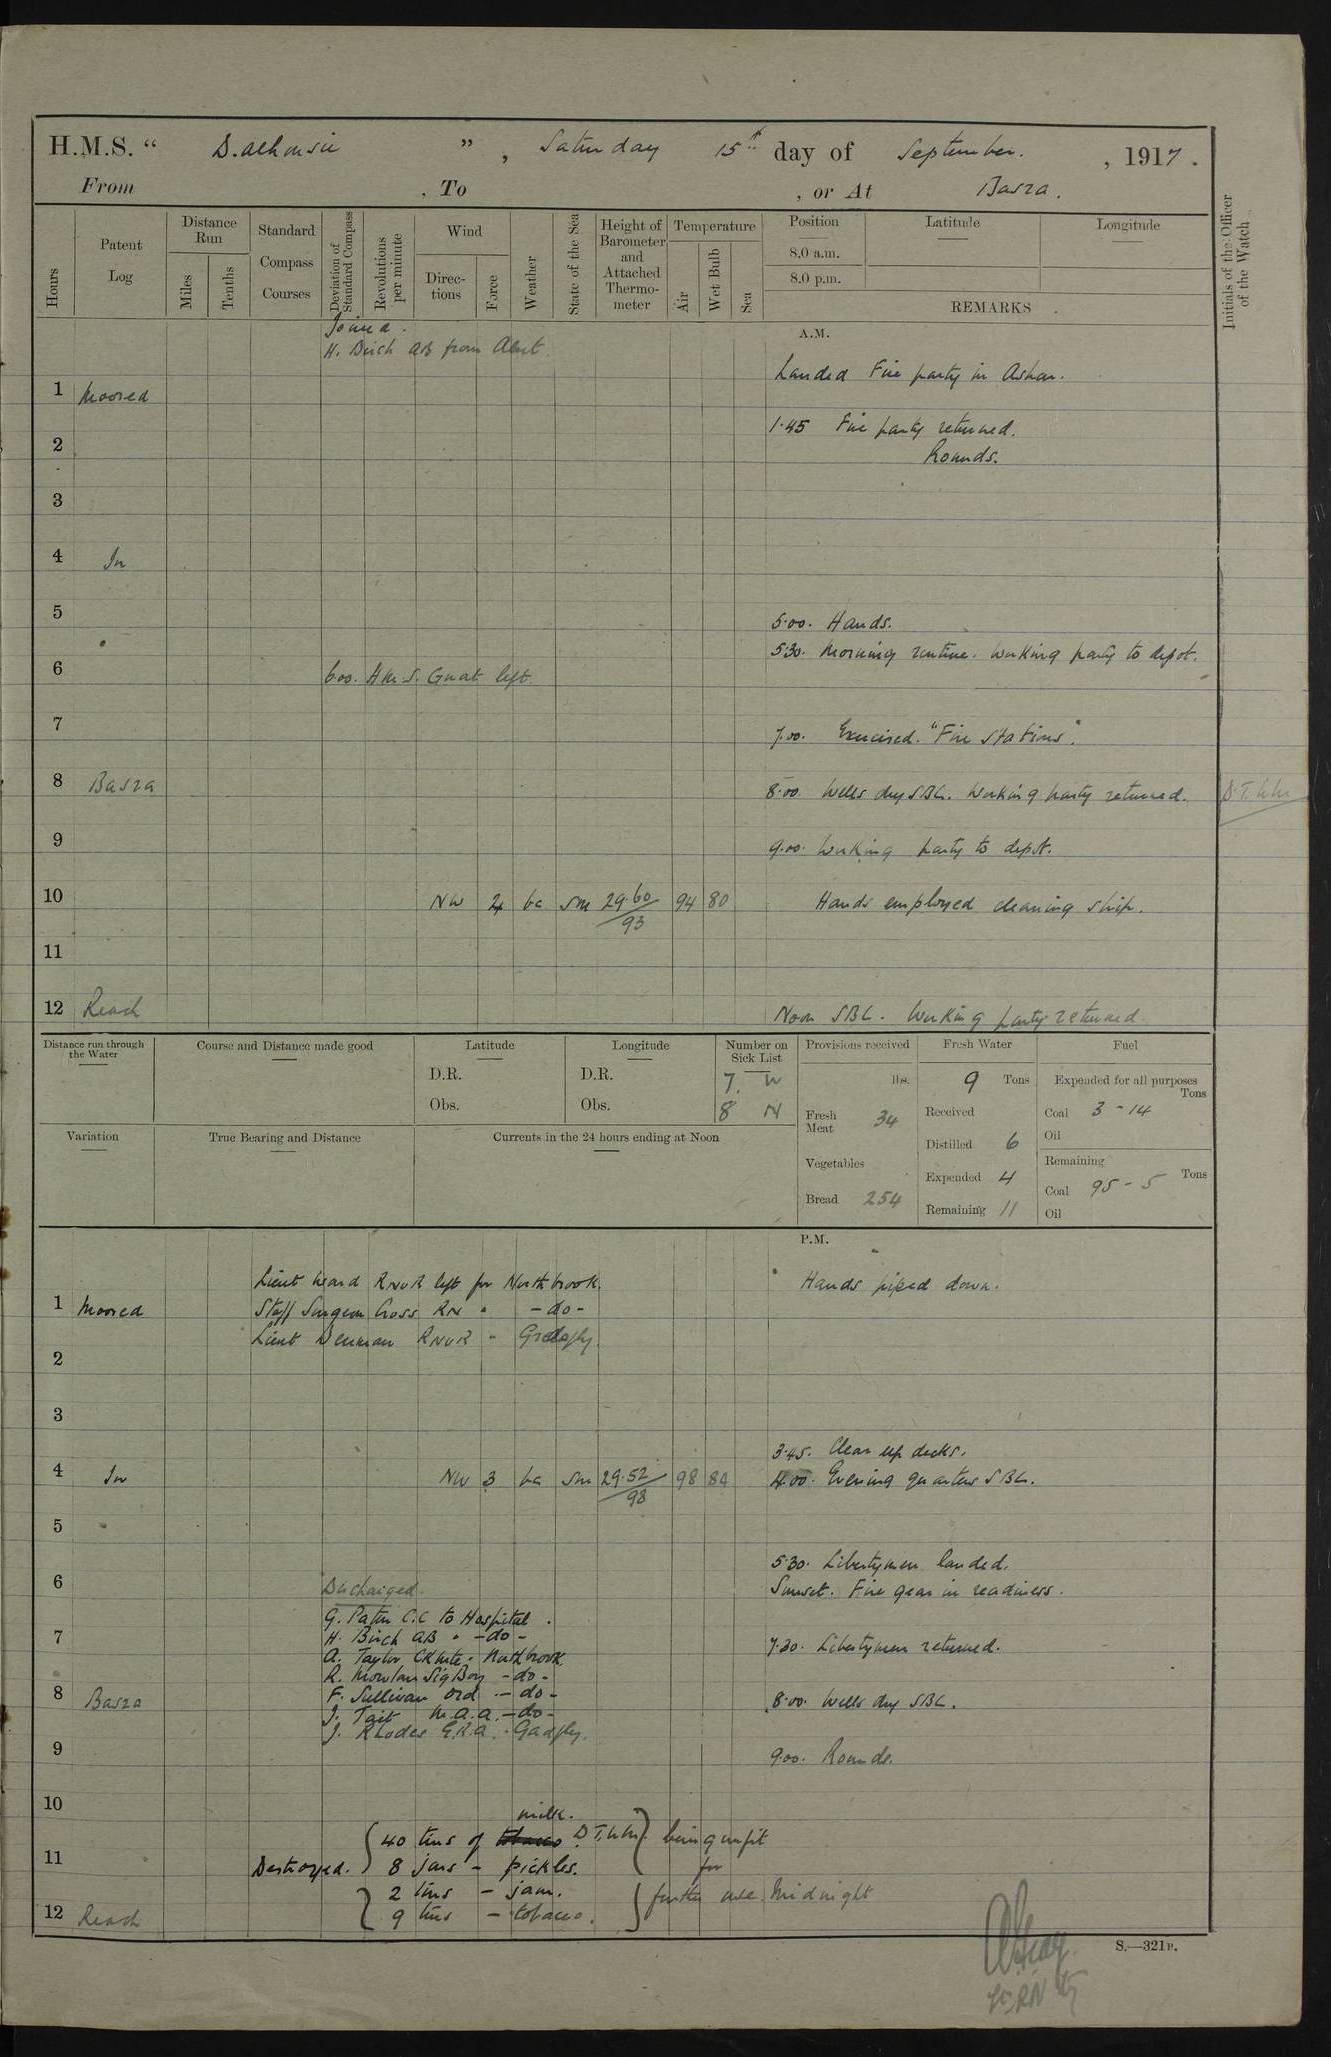 H.M.S. “ Dalhousie ” , Saturday 15th day of September. , 1917.
From , To , or At Basra.
Hours
Patent Log
Distance Run
Miles
Tenths
Standard Compass Courses
Deviation of Standard Compass
Revolutions per minute
Wind
Direc-tions
Force
Weather
State of the Sea
Height of Barometer and Attached Thermo-meter
Temperature
Air
Wet Bulb
Sea
Position
8.0 a.m.
8.0 p.m.
Latitude
Longitude
REMARKS
Initials of the Officer of the Watch
Joined.
A.M.
H. Birch AB from Alert
Landed Fire party in Ashar.
1 Moored
1.45 Fire party returned.
2
Rounds.
3
4 In
5
5.00. Hands.
5.30. Morning routine. Working party to depot.
6 6.00. H.M.S. Gnat left
7
7.00. Exercised "Fire Stations".
8 Basra 8.00. Wells dry SBC. Working party returned. D.T.
9
9.00. Working party to depot.
10 NW 4 bc sm 29.60/93 94 80 Hands employed cleaning ship.
11
12 Reach Noon SBC. Working party returned
Distance run through the Water
Course and Distance made good
Latitude
D.R.
Obs.
Longitude
D.R.
Obs.
Number on Sick List
7. W
8 N
Provisions received
lbs.
Fresh Meat 34
Vegetables
Bread 254
Fresh Water
9 Tons
Received
Distilled 6
Expended 4
Remaining 11
Fuel
Expended for all purposes
Tons
Coal 3-14
Oil
Remaining
Coal 95-5 Tons
Oil
Variation
True Bearing and Distance
Currents in the 24 hours ending at Noon
P.M.
Lieut Heard RNVR left for Northbrook. Hands piped down.
1 Moored Staff Surgeon Cross RN " -do-
Lieut Denman RNVR " Gadfly.
2
3
3.45. Clear up decks.
4 In NW 3 bc sm 29.52/98 98 84 4.00. Evening quarters SBC.
5
5.30. Libertymen landed.
6 Discharged. Sunset. Fire gear in readiness.
G. Patin C.C to Hospital.
7 H. Birch AB " -do- 7.30. Libertymen returned.
A. Taylor CK Mte " Northbrook
R. Mowlan Sig Boy -do-
8 Basra F. Sullivan Ord -do- 8.00. Wells dry SBC.
J. Tait M.A.A. -do-
J. Rhodes E.R.A. " Gadfly.
9
9.00. Rounds.
10
milk.
40 tins of tobacco D.T. being unfit
11 Destroyed. 8 jars - pickles. for
2 tins - jam. further use. Midnight
12 Reach 9 tins - tobacco.
S.—321B.
Lt. RN